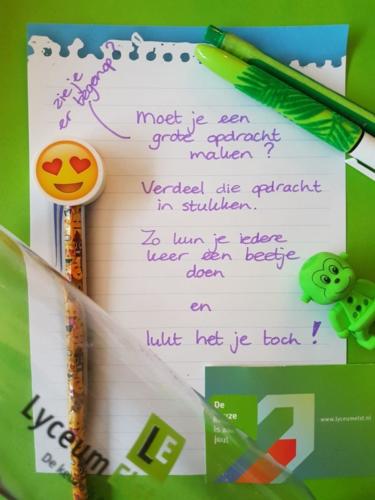 zie je
er tegenop?
Moet je een
grote opdracht
maken ?
Verdeel die opdracht
in stukken.
Zo kun je iedere
keer een beetje
doen
en
lukt het je toch !
De
keuze
is aan
jou!
www.lyceumelst.nl
Lyceum
LE
De